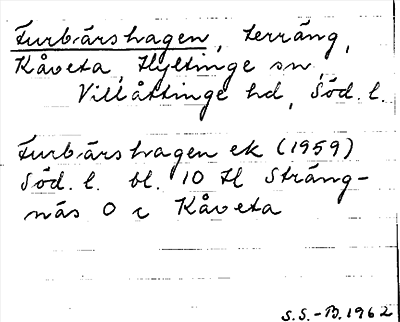 Furbärshagen, terräng,
Kåveta, Hyltinge sn,
Villåttinge hd, Söd. l.
Furbärshagen ek (1959)
Söd. l. bl. 10 H Sträng-
näs O c Kåveta
S.S.-B. 1962